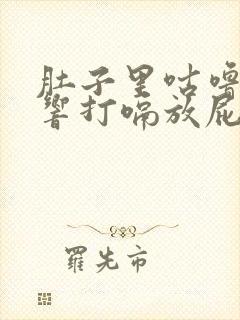 肚子里咕噜
响打嗝放屁
羅先市